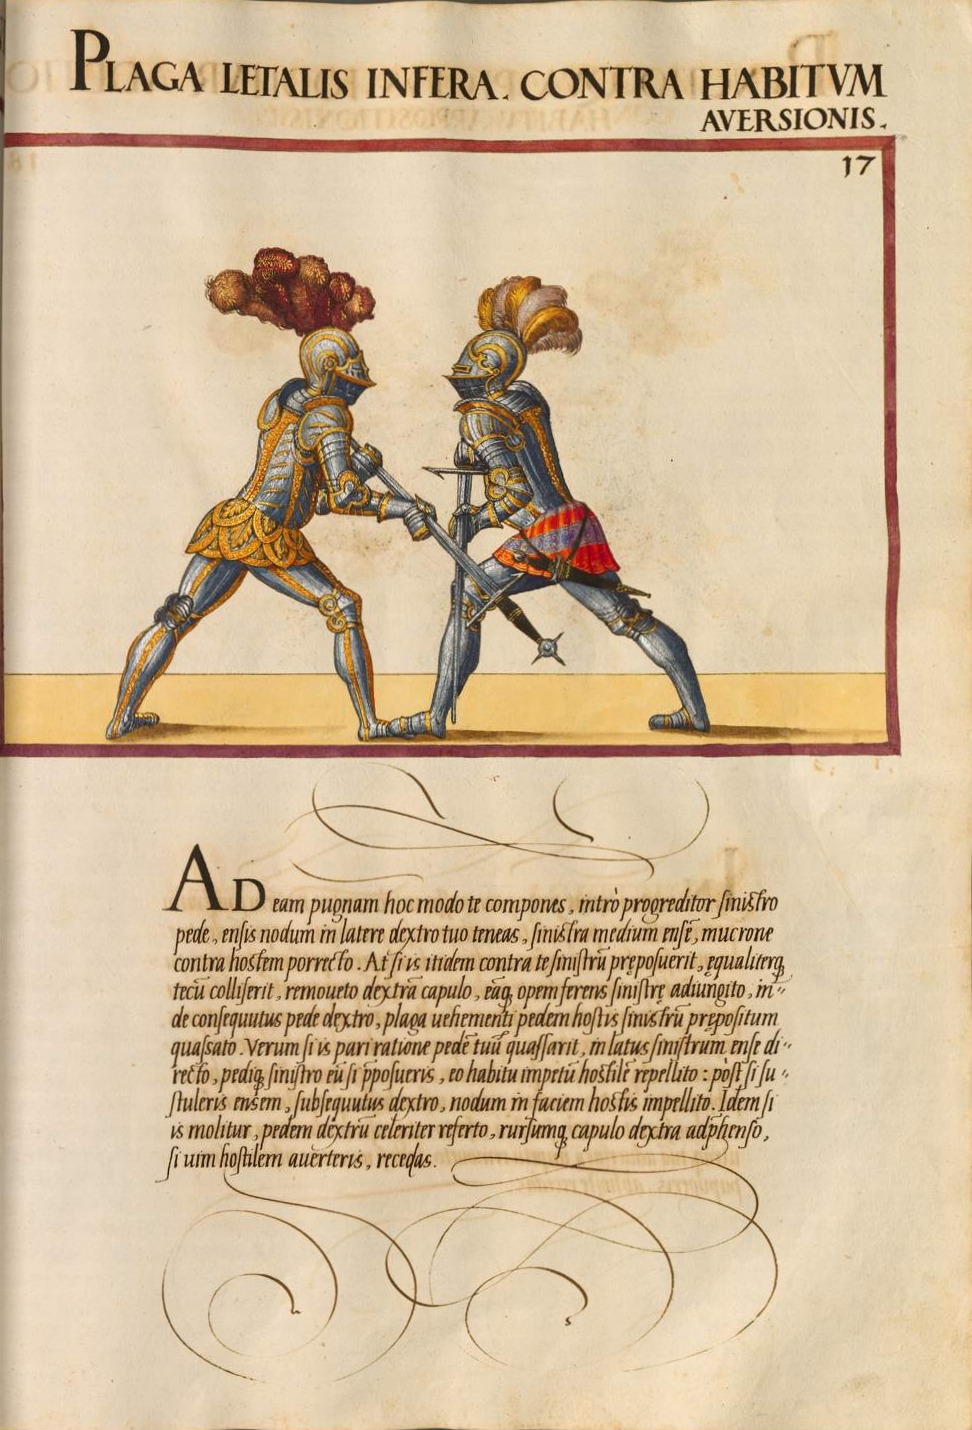 PLAGA LETALIS INFERA. CONTRA HABITVM
AVERSIONIS.
17
AD eam pugnam hoc modo te compones, intrò progreditor sinistro
pede, ensis nodum in latere dextro tuo teneas, sinistra medium ensē, mucrone
contra hostem porrecto. At si is itidem contra te sinistrū pręposuerit, ęqualiterq̨
tecū colliserit, remoueto dextrā capulo, eāq̨ opem ferens sinistrę adiungito, in-
de consequutus pede dextro, plaga uehementi pedem hostis sinistrū prępositum
quassato. Verum si is pari ratione pedē tuū quassarit, in latus sinistrum ense di-
recto, pediq̨ sinistro eū si pposueris, eo habitu impetū hostilē repellito: pòst si su-
stuleris ensem, subsequutus dextro, nodum in faciem hostis impellito. Idem si
is molitur, pedem dextrū celeriter referto, rursumq̨ capulo dextra adphenso,
si uim hostilem auerteris, recedas.